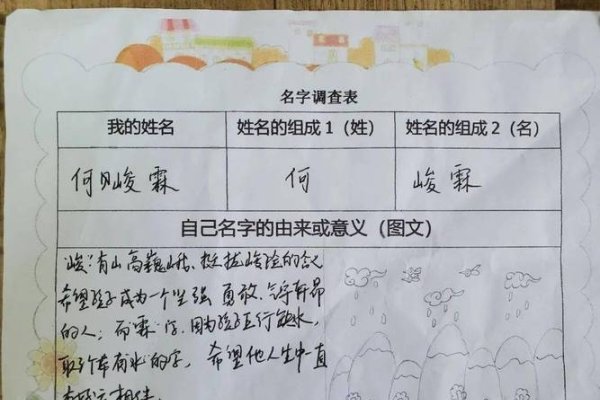 名字调查表
我的姓名 姓名的组成1（姓） 姓名的组成2（名）
何峻霖 何 峻霖
自己名字的由来或意义（图文）
峻：有山高巍峨、挺拔峻险的含义
希望孩子成为一个坚强 勇敢、气宇轩昂
的人；而霖字，因为孩子五行缺水，
取个带有水的字，希望他人生中一直
有好运相伴。